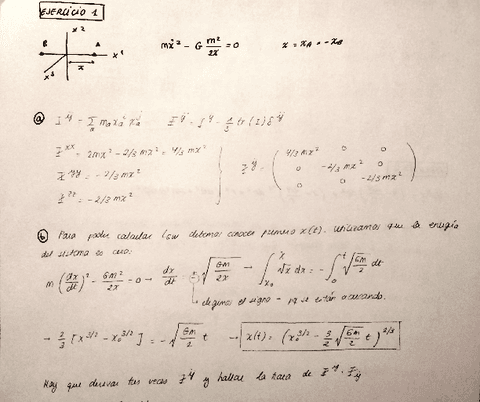 EJERCICIO 1
x² B A x¹ x³ x
mẋ² - G m²/2x = 0 x = x_A = -x_B
ⓐ I^ij = Σ_a m_a x_a^i x_a^j I^ij = I^ij - 1/3 tr(I) δ^ij
I^xx = 2mx² - 2/3 mx² = 4/3 mx²
I^yy = -2/3 mx²
I^zz = -2/3 mx²
I^ij = ( 4/3 mx² 0 0
0 -2/3 mx² 0
0 0 -2/3 mx² )
ⓑ Para poder calcular debemos conocer primero x(t). utilizamos que la energía
del sistema es cero:
m (dx/dt)² - Gm²/2x = 0 → dx/dt = - √(Gm/2x) → ∫_{x₀}^{x} √x dx = - ∫_0^t √(Gm/2) dt
elegimos el signo - pq se están acercando.
→ 2/3 [x^{3/2} - x₀^{3/2}] = - √(Gm/2) t → x(t) = (x₀^{3/2} - 3/2 √(Gm/2) t)^{2/3}
Hay que derivar tres veces I^ij y hallar la traza de I^ij · I_ij